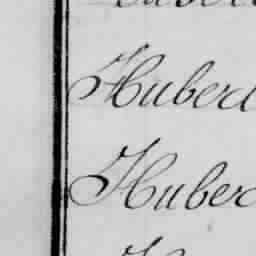 Huberd
Huber